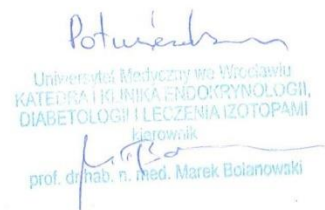 Potwierdzam
Uniwersytet Medyczny we Wrocławiu
KATEDRA I KLINIKA ENDOKRYNOLOGII,
DIABETOLOGII I LECZENIA IZOTOPAMI
kierownik
prof. dr hab. n. med. Marek Bolanowski